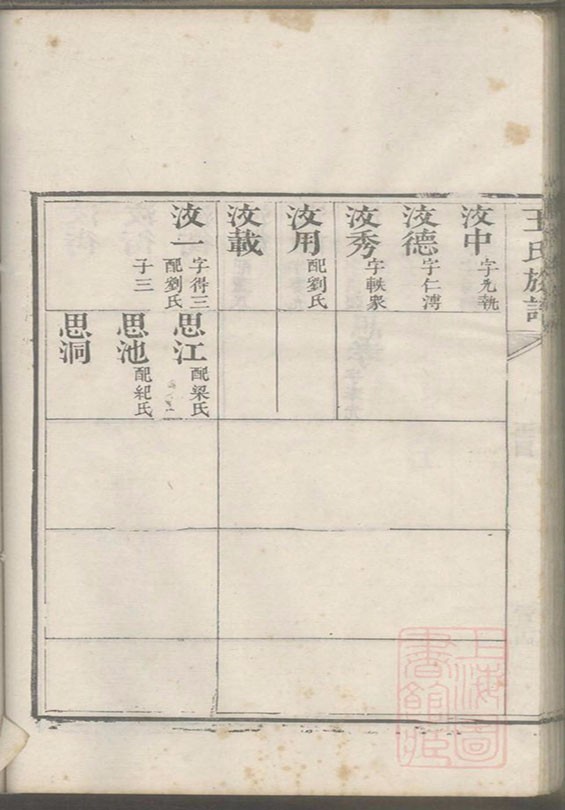 王氏族譜
汝中 字允執
汝德 字仁溥
汝秀 字軼衆
汝用 配劉氏
汝載
汝一 字得三
配劉氏
子三
思江 配梁氏
思池 配紀氏
思洞
上海圖
書館藏